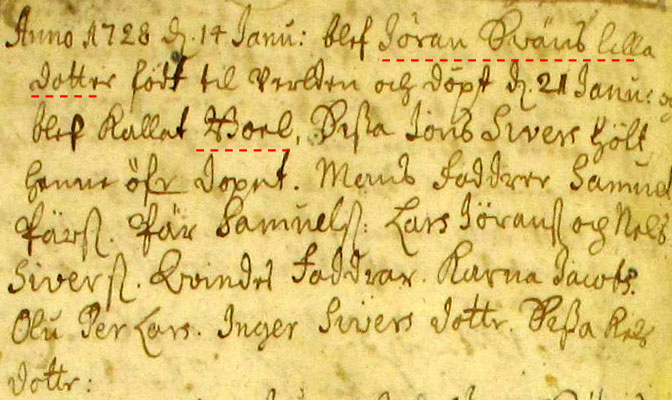 Anno 1728 d. 14 Janu: blef Jöran Swäns lilla
dotter födt til Verlden och döpt d. 21 Janu:
blef Kallat Boel, Sißa Jöns Sivers hölt
henne öfr dopet. Mans faddrer Samuel
Pärß. Pär Samuelß: Lars Jöranß och Nels
Siverß. Qvindes faddrar. Karna Jacobs.
Olu Per Lars. Inger Sivers dottr. Sißa
dottr: